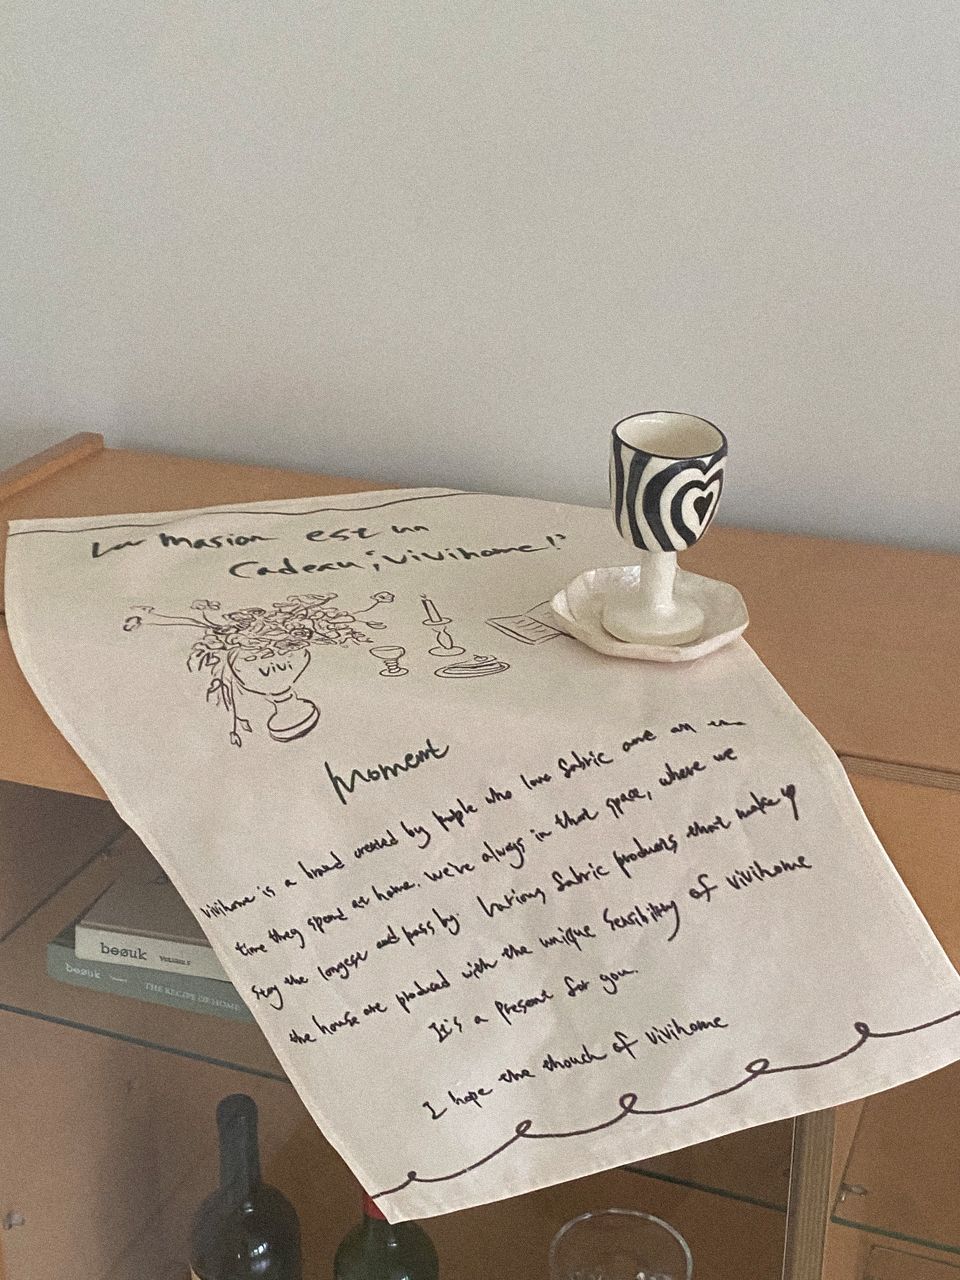 La Masion est un
Cadeau; vivihome!
vivi
Moment
vivihome is a brand created by people who love fabric and an
time they spend at home. we've always in that space, where we
stay the longest and pass by. Various fabric products that make up
the house are produced with the unique sensibility of vivihome
It's a present for you.
I hope the thouch of vivihome
beøuk VOLUME.5
beøuk THE RECIPE OF HOME